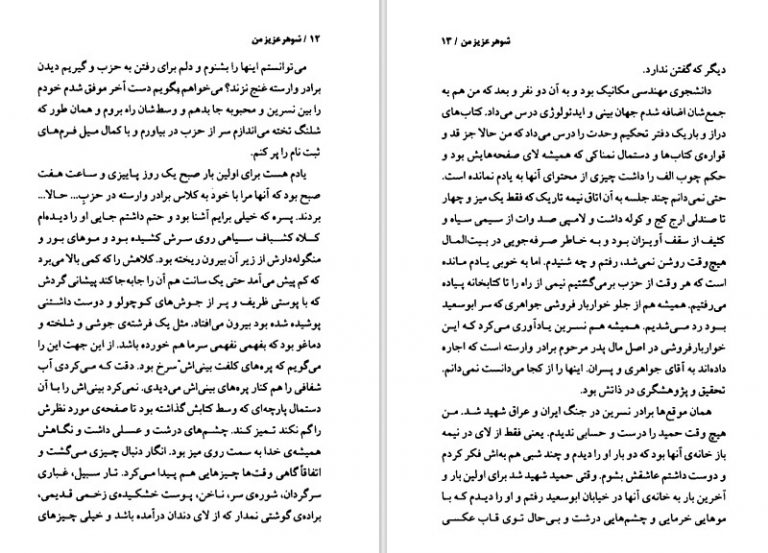 ۱۲ / شوهر عزیز من
می‌توانستم اینها را بشنوم و دلم برای رفتن به حزب و گیریم دیدن
برادر وارسته غنج نزند؟ می‌خواهم بگویم دست آخر موفق شدم خودم
را بین نسرین و محبوبه جا بدهم و وسط‌شان راه بروم و همان طور که
شلنگ تخته می‌اندازم سر از حزب در بیاورم و با کمال میل فرم‌های
ثبت نام را پر کنم.
یادم هست برای اولین بار صبح یک روز پاییزی و ساعت هفت
صبح بود که آنها مرا با خود به کلاس برادر وارسته در حزب... حالا...
بردند. پسره که خیلی برایم آشنا بود و حتم داشتم جایی او را دیده‌ام
کلاه کشباف سیاهی روی سرش کشیده بود و موهای بور و
منگوله‌دارش از زیر آن بیرون ریخته بود. کلاهش را که کمی بالا می‌برد
که کم پیش می آمد حتی یک سانت هم آن را جابه‌جا کند پیشانی گردش
که با پوستی ظریف و پر از جوش‌های کوچولو و دوست داشتنی
پوشیده شده بود بیرون می‌افتاد. مثل یک فرشته‌ی جوشی و شلخته و
دماغو بود که بفهمی نفهمی سرما هم خورده باشد. از این جهت این را
می‌گویم که پره‌های کلفت بینی‌اش سرخ بود. دقت که می‌کردی آب
شفافی را هم کنار پره‌های بینی‌اش می‌دیدی. نمی‌کرد بینی‌اش را با آن
دستمال پارچه‌ای که وسط کتابش گذاشته بود تا صفحه‌ی مورد نظرش
را گم نکند تمیز کند. چشم‌های درشت و عسلی داشت و نگاهش
همیشه‌ی خدا به سمت روی میز بود. انگار دنبال چیزی می‌گشت و
اتفاقاً گاهی وقت‌ها چیزهایی هم پیدا می‌کرد. تار سبیل، غباری
سرگردان، شوره‌ی سر، ناخن، پوست خشکیده‌ی زخمی قدیمی،
براده‌ی گوشتی نمدار که از لای دندان درآمده باشد و خیلی چیزهای
شوهر عزیز من / ۱۳
دیگر که گفتن ندارد.
دانشجوی مهندسی مکانیک بود و به آن دو نفر و بعد که من هم
جمع‌شان اضافه شدم جهان بینی و ایدئولوژی درس می‌داد. کتاب‌های
دراز و باریک دفتر تحکیم وحدت را درس می‌داد که من حالا جز قد و
قواره‌ی کتاب‌ها و دستمال نمناکی که همیشه لای صفحه‌هایش بود و
حکم چوب الف را داشت چیزی از محتوای آنها به یادم نمانده است.
حتی نمی‌دانم چند جلسه به آن اتاق نیمه تاریک که فقط یک میز و چهار
تا صندلی ارج کج و کوله داشت و لامپی صد وات از سیمی سیاه و
کثیف از سقف آویزان بود و به خاطر صرفه‌جویی در بیت‌المال
هیچ‌وقت روشن نمی‌شد، رفتم و چه شنیدم. اما به خوبی یادم مانده
است که هر وقت از حزب برمی‌گشتیم نیمی از راه را تا کتابخانه پیاده
می‌رفتیم. همیشه هم از جلو خواربار فروشی جواهری که سر ابوسعید
بود رد می‌شدیم. همیشه هم نسرین یادآوری می‌کرد که این
خواربارفروشی در اصل مال پدر مرحوم برادر وارسته است که اجاره
داده‌اند به آقای جواهری و پسران. اینها را از کجا می‌دانست نمی‌دانم.
تحقیق و پژوهشگری در ذاتش بود.
همان موقع‌ها برادر نسرین در جنگ ایران و عراق شهید شد. من
هیچ وقت حمید را درست و حسابی ندیدم. یعنی فقط از لای در نیمه
باز خانه‌ی آنها بود که دو بار او را دیدم و چند شبی هم به‌اش فکر کردم
و دوست داشتم عاشقش بشوم. وقتی حمید شهید شد برای اولین بار و
آخرین بار به خانه‌ی آنها در خیابان ابوسعید رفتم و او را دیدم که با
موهایی خرمایی و چشم‌هایی درشت و بی‌حال توی قاب عکسی